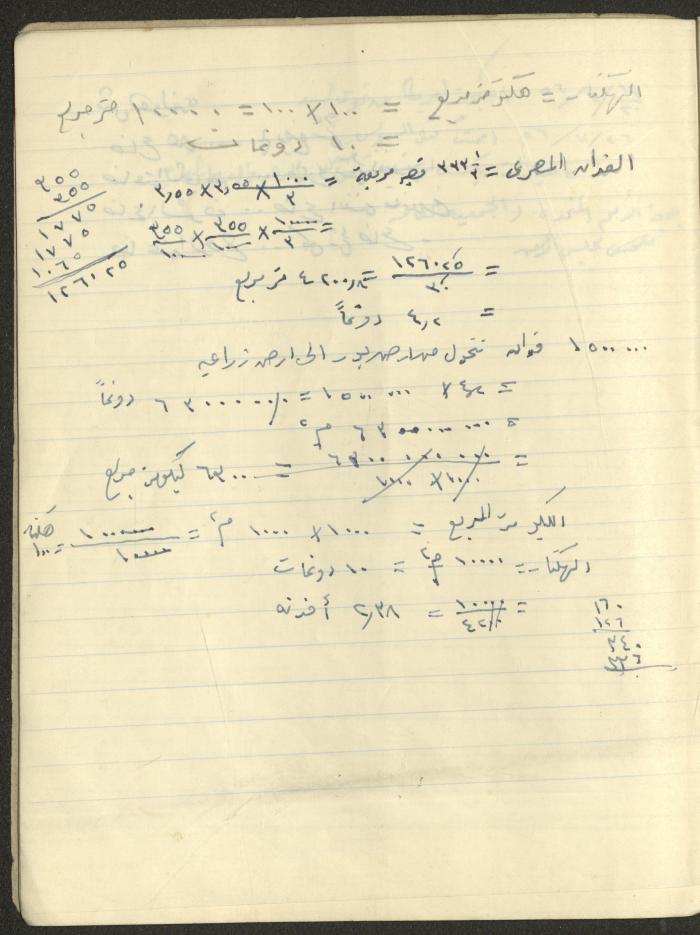 الهكتار = هكتومتر مربع = ١٠٠ × ١٠٠ = ١٠٠٠٠ متر مربع
= ١٠ دونمات
الفدان المصرى = ٣٣٣ ١/٣ قصبة مربعة = ١٠٠٠/٣ × ٣,٥٥ × ٣,٥٥
٣٥٥
٣٥٥
١٧٧٥
١٧٧٥
١٠٦٥
١٢٦٠٢٥
= ١٠٠٠/٣ × ٣٥٥/١٠٠ × ٣٥٥/١٠٠
= ١٢٦٠٢٥/٣٠ = ٤٢٠٠,٨ متر مربع
= ٤,٢ دونماً
١٥٠٠٠٠٠ فدان تتحول من ارض بور الى ارض زراعيه
= ٤,٢ × ١٥٠٠٠٠٠ = ٦٣٠٠٠٠٠ دونماً
= ٦٣٠٠٠٠٠٠٠٠ م٢
= ٦٣٠٠٠٠٠٠٠٠/١٠٠٠ × ١٠٠٠ = ٦٣٠٠ كيلومتر مربع
الكيلو متر المربع = ١٠٠٠ × ١٠٠٠ م٢ = ١٠٠٠٠٠٠/١٠٠٠٠ = ١٠٠ هكتار
الهكتار = ١٠٠٠٠ م٢ = ١٠ دونمات
= ١٠٠٠٠/٤٢٠٠ = ٢,٣٨ أفدنه
١٦٠
١٢٦
٣٤٠
٣٣٦